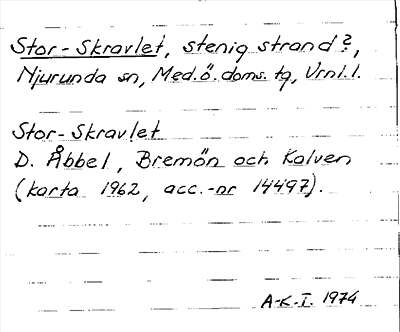 Stor-Skravlet, stenig strand?,
Njurunda sn, Med.ö. doms. tg, Vrnl. l.
Stor-Skravlet
D. Åbbel, Bremön och Kalven
(karta 1962, acc.-nr 14497).
A-K-I. 1974